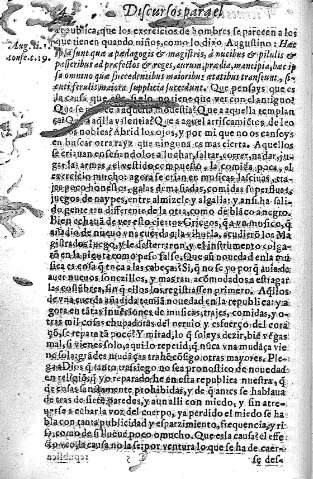 Discursos para el
republica, que los exercicios de hombres se pareceen a los
que tienen quando niños, como lo dixo Augustino: Hæc
Aug. li. 1.
ipsa sunt quæ a pædagogis & magistris, à nucibus & pilulis &
confes. c. 19.
passeribus ad præfectos & reges, aurum, prædia, mancipia, hæc ip
sa omnino quæ succedentibus maioribus ætatibus transeunt, si-
cuti ferulis maiora supplicia succedunt. Que pensays que es
la causa que este siglo no tiene que ver con el antiguo?
Que se parece a aquella modestia? Que a aquella templan
ça? Que a aquella valentia? Que a aquel arriscamiento, de
los nobles? Abrid los ojos, y por mi que no os canseys
en buscar otra rayz que ninguna es mas cierta. Aquellos
se criauan enseñandolos a luchar, saltar, correr, nadar, ju-
gar las armas, el vestido, la comida poca, el
exercicio mucho: agora se crian en musicas lasciuas, tra-
jes poco honestos, galas demasiadas, comidas superfluas,
juegos de naypes, entre almizcle y algalia: y ansi ha sali-
do gente tan differente de la otra, como de blãco a negro.
Bien echauã de ver esto ciertos Griegos, q̃ a vn musico, q̃
añadio de nueuo vna cuerda a la vihuela, acudierõ los Ma
gistrados luego, y le desterraron, y el instrumento colga-
rõ en la picota como peso falso. Que aũ nouedad en la mu
sica es cosa que toca a las cabeças? Si, q̃ no se yo por q̃
auer nueuos sonezillos, y mas tan acomodados a estragar
las costũbres, sin q̃ ellos los registrassen primero. Aq̃llos
de vna cuerda añadida temiã nouedad en la republica: y a
gora en tãtas inuẽsiones de musicas, trajes, comidas, y o-
tras mil cosas chupadoras del neruio y esfuerço del cora
çõ, se repara tã poco? Y mirad, lo q̃ soleys dezir, biẽ vẽgas
mal, si vienes solo, aqui lo repetid, q̃ nũca vna mudãça vie
ne sola: grãdes mudãças trahẽ cõsigo otras mayores. Ple-
ga a Dios q̃ tanto trasiego no sea pronostico de nouedad
en religiõ: q̃ yo reparado he en esta republica nuestra, q̃
de cosas sanctamente prohibidas, y de quiẽ se hablaua
de tras de siete paredes, y aun alli con miedo, y sin atre-
uerse a echar la voz del cuerpo, ya perdido el miedo se ha
bla con tanta publicidad y esparzimiento, frequencia, y ri
so, como de si llueue poco o mucho. Que es la causa? el effe
cto veo, la causa no la se: por ventura lo que se ha de caer-
se des-